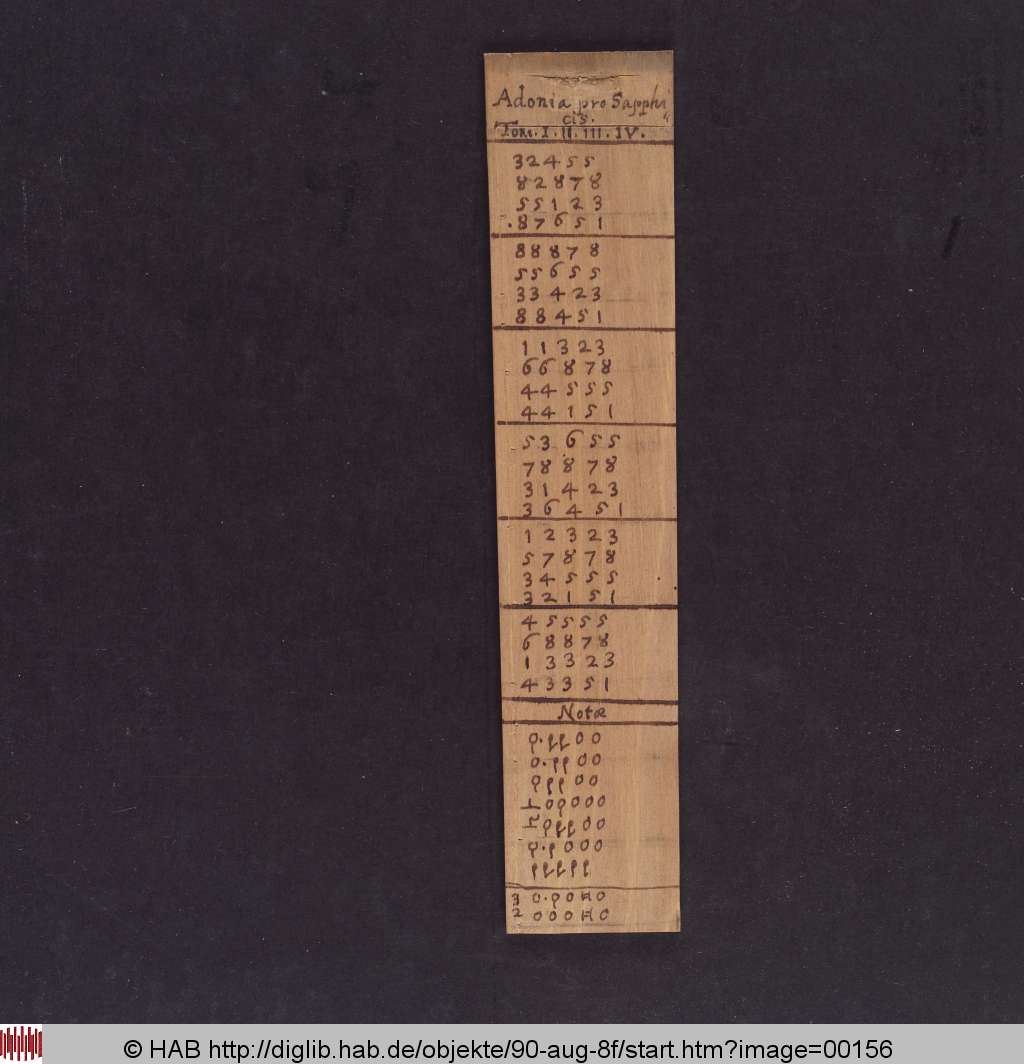 Adonia pro Sapphi
cis.
Toni. I. II. III. IV.
3 2 4 5 5
8 2 8 7 8
5 5 1 2 3
.8 7 6 5 1
8 8 8 7 8
5 5 6 5 5
3 3 4 2 3
8 8 4 5 1
1 1 3 2 3
6 6 8 7 8
4 4 5 5 5
4 4 1 5 1
5 3 6 5 5
7 8 8 7 8
3 1 4 2 3
3 6 4 5 1
1 2 3 2 3
5 7 8 7 8
3 4 5 5 5
3 2 1 5 1
4 5 5 5 5
6 8 8 7 8
1 3 3 2 3
4 3 3 5 1
Notæ
3
2
© HAB http://diglib.hab.de/objekte/90-aug-8f/start.htm?image=00156